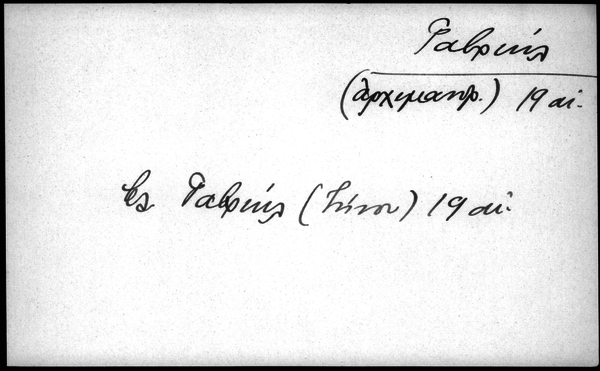 Γαβριήλ
(ἀρχιμανδρ.) 19 αἰ.
βλ. Γαβριήλ (Τήνου) 19 αἰ.